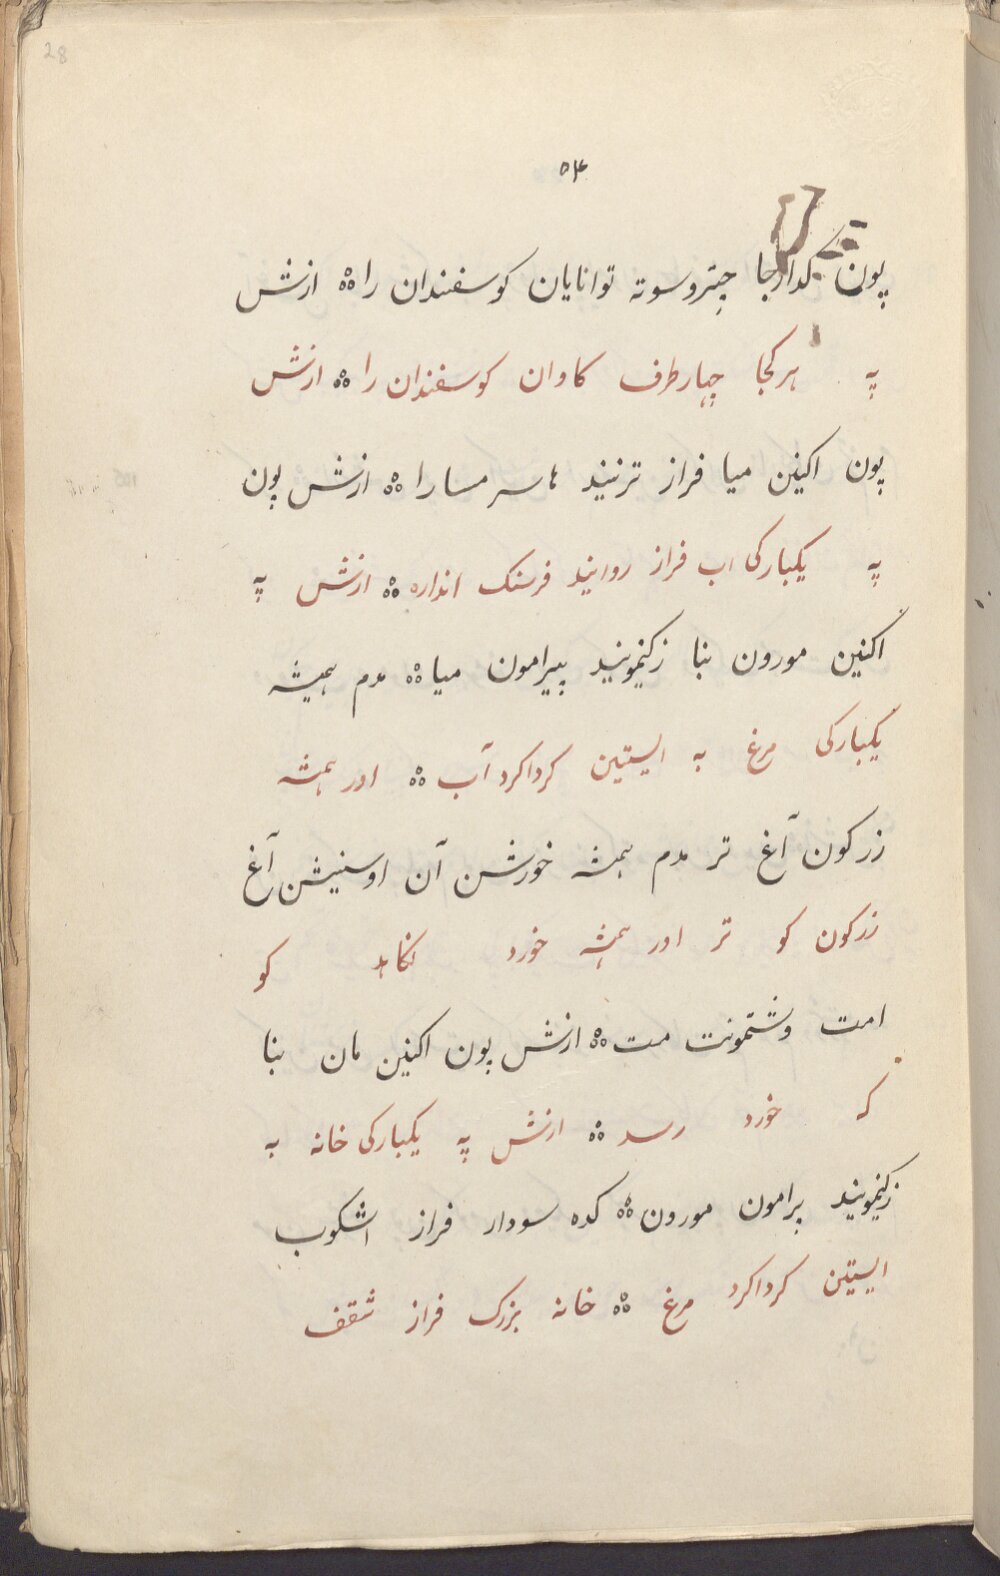 28
۵۴
پون کدارجا چتروسوته توانایان کوسفندان را ازش
په هرکجا چهارطرف کاوان کوسفندان را ازش
پون اکنین میا فراز ترنیند هاسرمسا را ازش پون
په یکبارکی اب فراز روانیند فرسنک اندازه ازش په
اکنین مورون بنا زکیمونیند پیرامون میا مدم همیشه
یکبارکی مرغ به ایستین کرداکرد آب اور همشه
زرکون آغ تر مدم همشه خورشن آن اوسنیشن آغ
زرکون کو تر اور همشه خورد نکاهد کو
امت وشتمونت مت ازش پون اکنین مان بنا
که خورد رسد ازش په یکبارکی خانه به
زکیمونیند پرامون مورون کده سودار فراز اشکوب
ایستین کرداکرد مرغ خانه بزرک فراز شقف